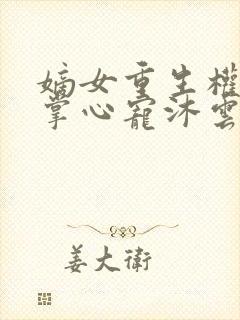 嫡女重生權
掌心寵沐雲
姜大衛